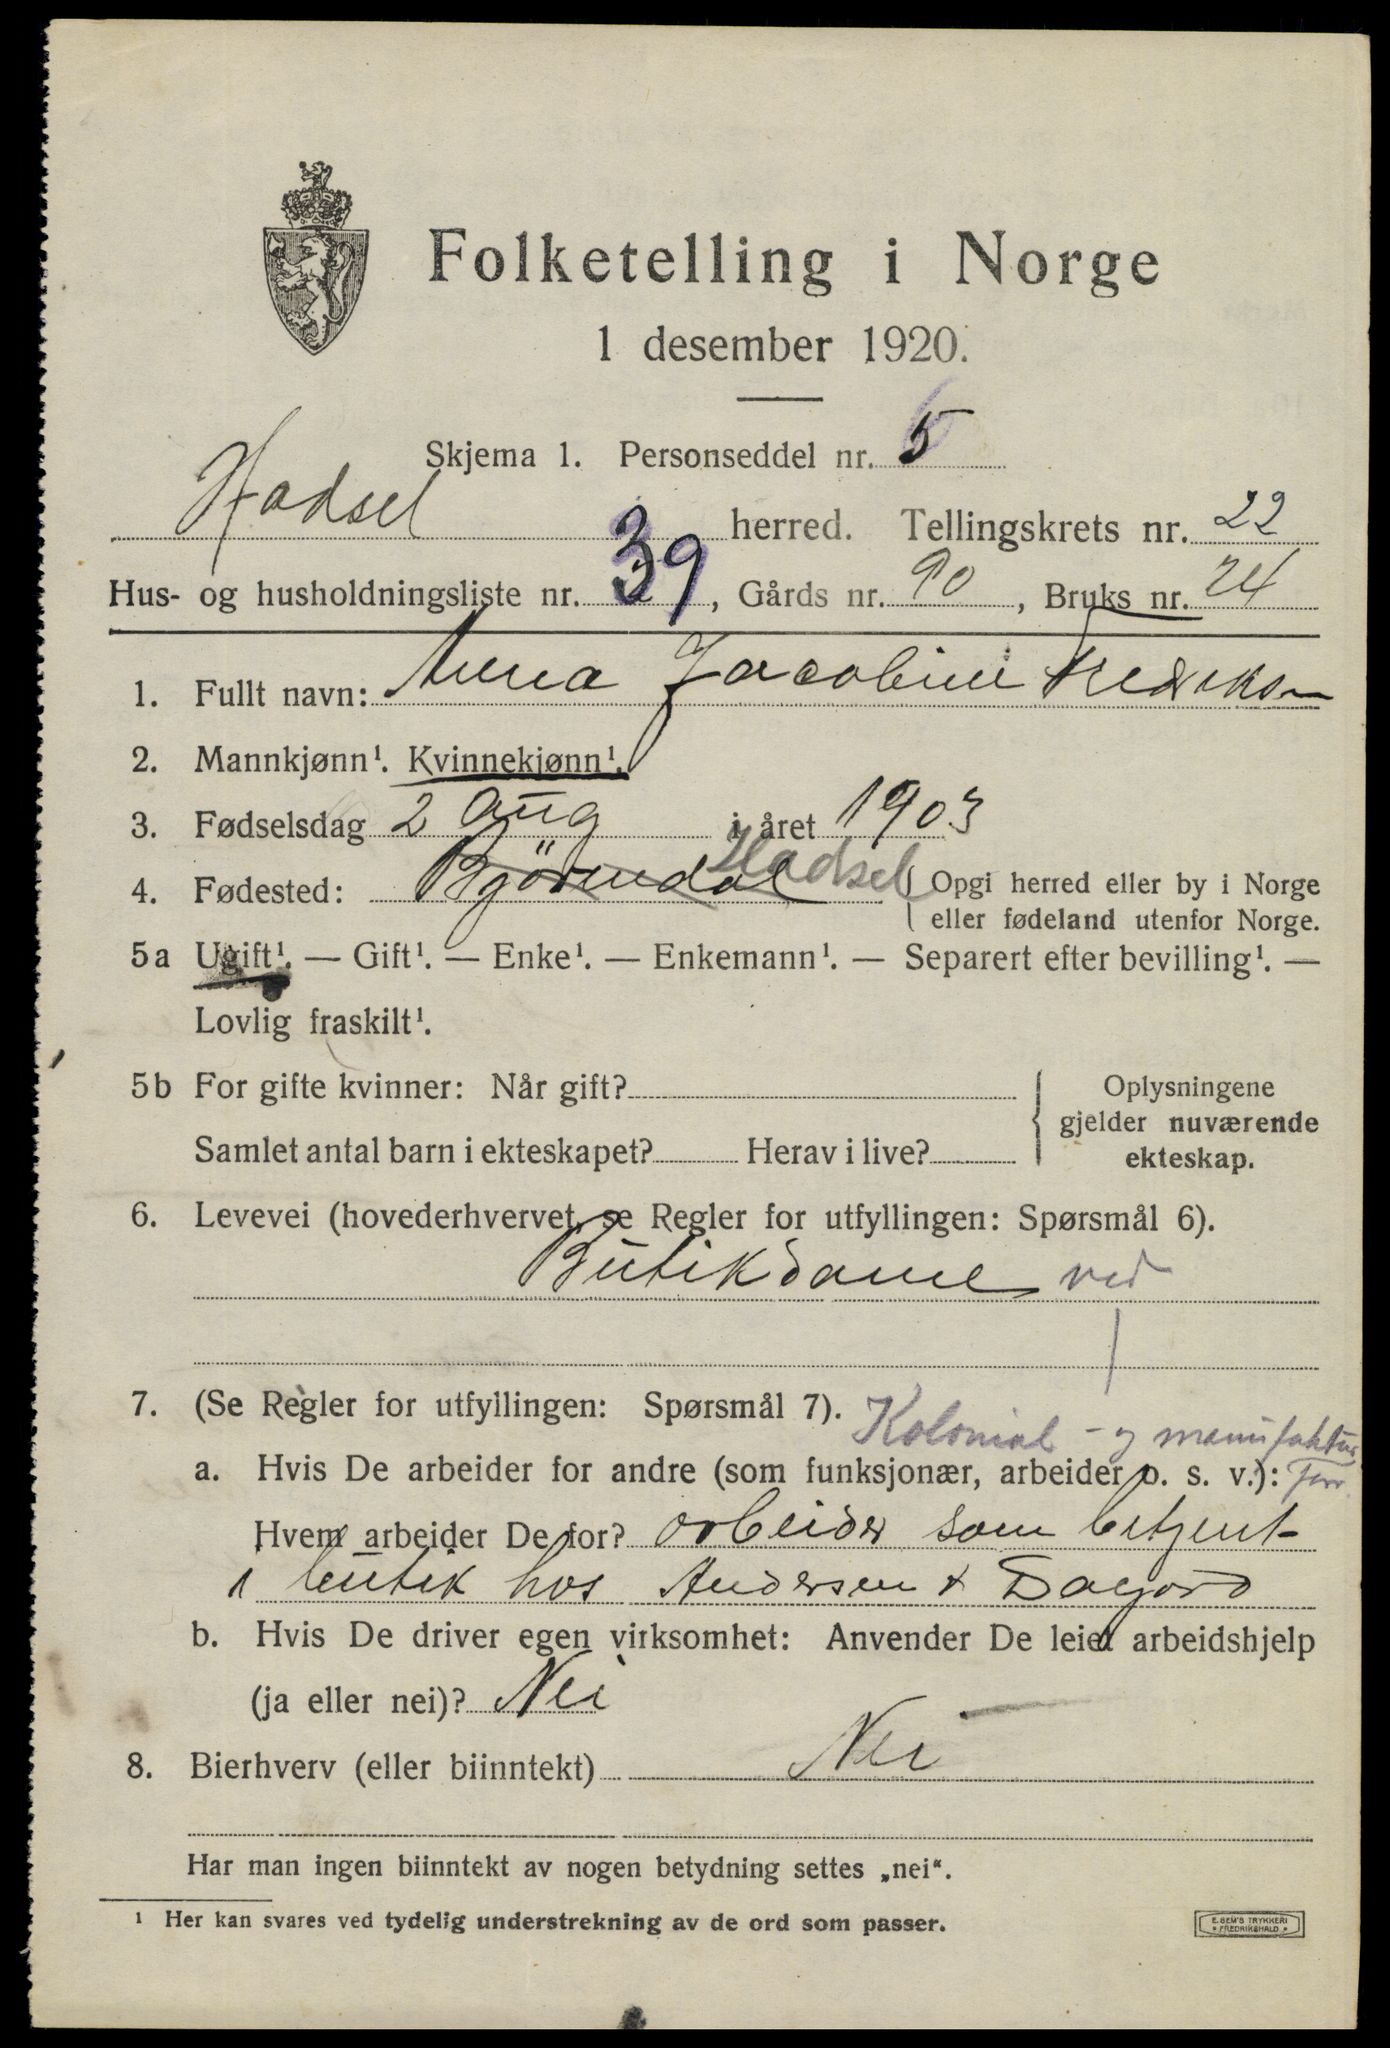 Folketelling i Norge
1 desember 1920.
Skjema 1. Personseddel nr. 5
Hadsel herred. Tellingskrets nr. 22
Hus- og husholdningsliste nr. 39, Gårds nr. 90, Bruks nr. 24
1. Fullt navn: Anna Jacobine Fredriksen
2. Mannkjønn¹. Kvinnekjønn¹.
3. Fødselsdag 2 aug i året 1903
4. Fødested: Bjørndal Hadsel (Opgi herred eller by i Norge
eller fødeland utenfor Norge.
5a Ugift¹. — Gift¹. — Enke¹. — Enkemann¹. — Separert efter bevilling¹. —
Lovlig fraskilt¹.
5b For gifte kvinner: Når gift? Oplysningene
gjelder nuværende
Samlet antal barn i ekteskapet? Herav i live? ekteskap.
6. Levevei (hovederhvervet, se Regler for utfyllingen: Spørsmål 6).
Butikdame ved
7. (Se Regler for utfyllingen: Spørsmål 7). Kolonial- og manufaktur
a. Hvis De arbeider for andre (som funksjonær, arbeider o. s. v.): forr.
Hvem arbeider De for? arbeider som betjent
i butik hos Andersen &
b. Hvis De driver egen virksomhet: Anvender De leiet arbeidshjelp
(ja eller nei)? Nei
8. Bierhverv (eller biinntekt) Nei
Har man ingen biinntekt av nogen betydning settes „nei“.
¹ Her kan svares ved tydelig understrekning av de ord som passer.
E. SEM'S TRYKKERI
FREDRIKSHALD